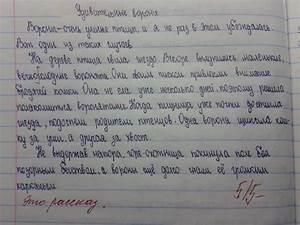 Удивительные вороны
Вороны-очень умные птицы, и я не раз в этом убеждалась.
Вот один из таких случаев.
На дереве птица свила гнездо. Вскоре вылупились маленькие,
беспомощные воронята. Они своим писком привлекли внимание
бродячей кошки. Она не ела уже несколько дней, поэтому решила
полакомиться воронятами. Когда хищница уже почти достигла
гнезда, подоспели родители птенцов. Одна ворона щипала кош-
ку за уши, а другая за хвост.
Не выдержав напора, кошка-охотница покинула поле боя
позорным бегством, а вороны ещё долго гнали её громким
карканьем.
Это рассказ. 5/5-